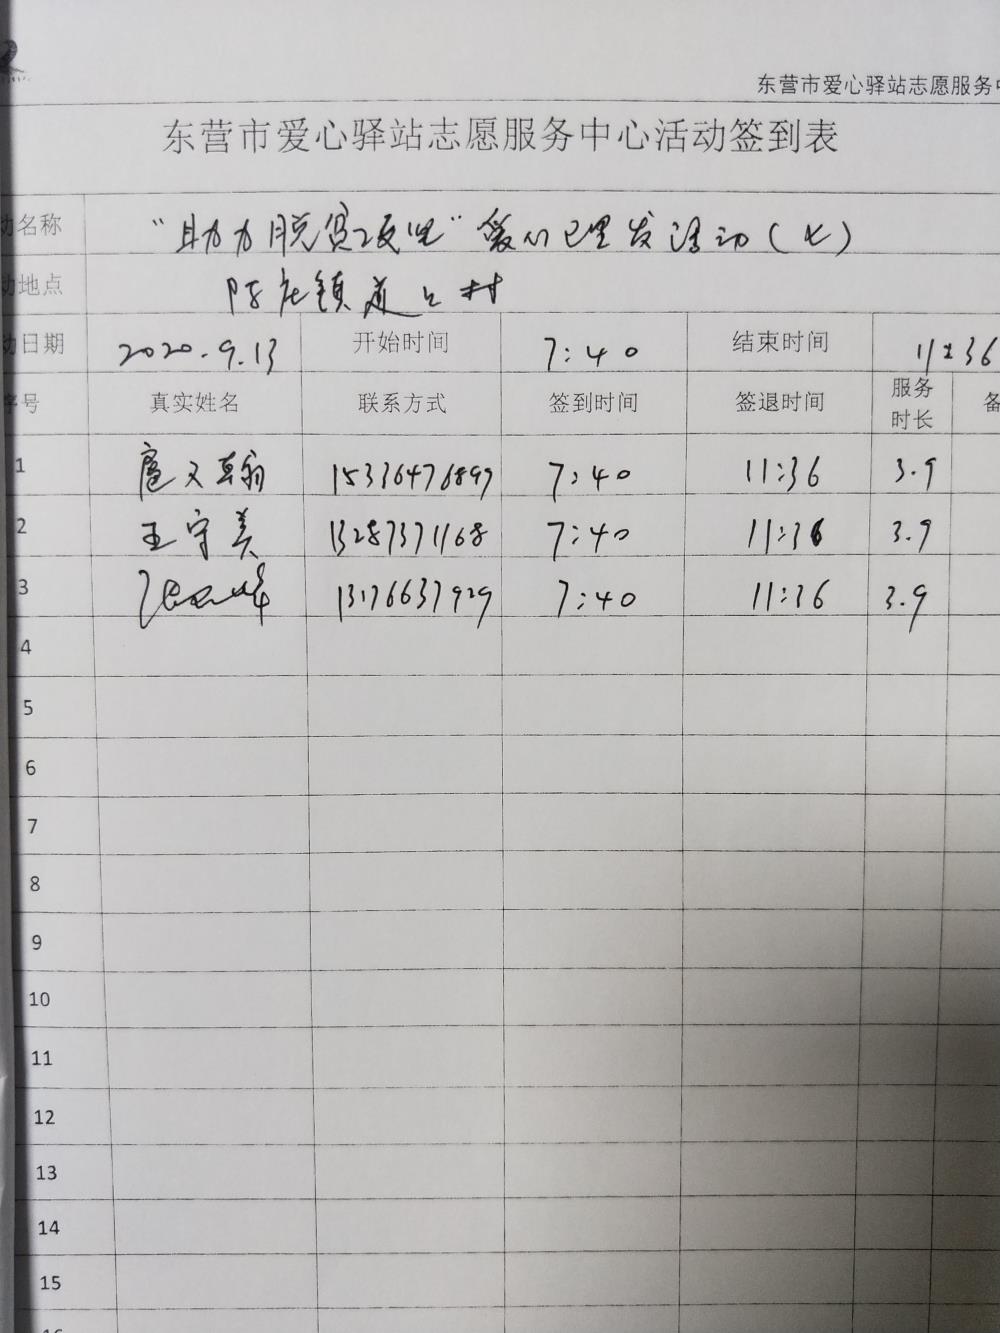 东营市爱心驿站志愿服务中
东营市爱心驿站志愿服务中心活动签到表
动名称 “助力脱贫攻坚”爱心理发活动(七)
动地点 陈庄镇道口村
动日期 2020.9.13 开始时间 7:40 结束时间 11:36
序号 真实姓名 联系方式 签到时间 签退时间 服务时长 备
1 扈文翰 15336476899 7:40 11:36 3.9
2 王守美 13287371168 7:40 11:36 3.9
3 峰 13176637929 7:40 11:36 3.9
4
5
6
7
8
9
10
11
12
13
14
15
16